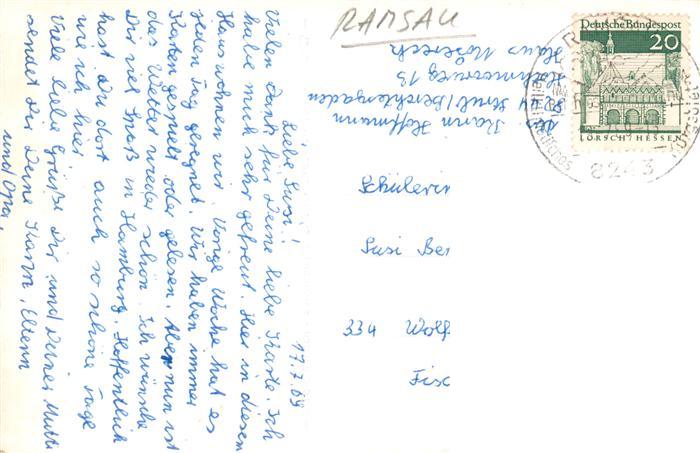 17.7.69
Liebe Susi!
Vielen Dank für Deine liebe Karte. Ich
habe mich sehr gefreut. Hier in diesem
Haus wohnen wir. Vorige Woche hat es
jeden Tag geregnet. Wir haben immer
Karten gespielt oder gelesen. Aber nun ist
das Wetter wieder schön. Ich wünsche
Dir viel Spaß in Hamburg. Hoffentlich
hast Du dort auch so schöne Tage
wie ich hier.
Viele liebe Grüße Dir und Deiner Mutti
sendet Dir Deine Karin, Eltern
und Opa.
RAMSAU
Abs. Karin Hoffmann
Berchtesgaden
13
Haus
Schülerin
Susi Ber
334 Wolf
Fisc
Deutsche Bundespost
20
LORSCH / HESSEN
8243